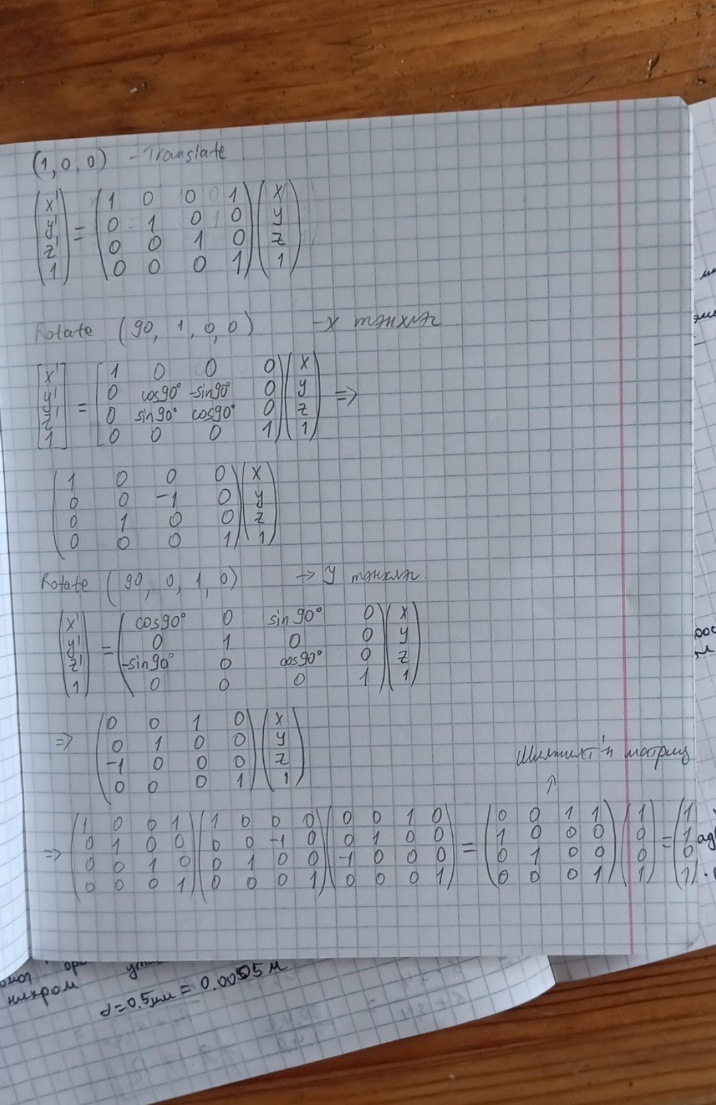 (1,0,0) - Translate
(x' y' z' 1) = (1 0 0 1 / 0 1 0 0 / 0 0 1 0 / 0 0 0 1) (x y z 1)
Rotate (90, 1, 0, 0) - x тэнхлэг
[x' y' z' 1] = [1 0 0 0 / 0 cos90° -sin90° 0 / 0 sin90° cos90° 0 / 0 0 0 1] (x y z 1) =>
(1 0 0 0 / 0 0 -1 0 / 0 1 0 0 / 0 0 0 1) (x y z 1)
Rotate (90, 0, 1, 0) -> y тэнхлэг
(x' y' z' 1) = (cos90° 0 sin90° 0 / 0 1 0 0 / -sin90° 0 cos90° 0 / 0 0 0 1) (x y z 1)
=> (0 0 1 0 / 0 1 0 0 / -1 0 0 0 / 0 0 0 1) (x y z 1)
матриц
=> (1 0 0 1 / 0 1 0 0 / 0 0 1 0 / 0 0 0 1) (1 0 0 0 / 0 0 -1 0 / 0 1 0 0 / 0 0 0 1) (0 0 1 0 / 0 1 0 0 / -1 0 0 0 / 0 0 0 1) = (0 0 1 1 / 1 0 0 0 / 0 1 0 0 / 0 0 0 1) (1 0 0 1) = (1 1 0 1)
нихром d=0.5мм = 0.0005 м